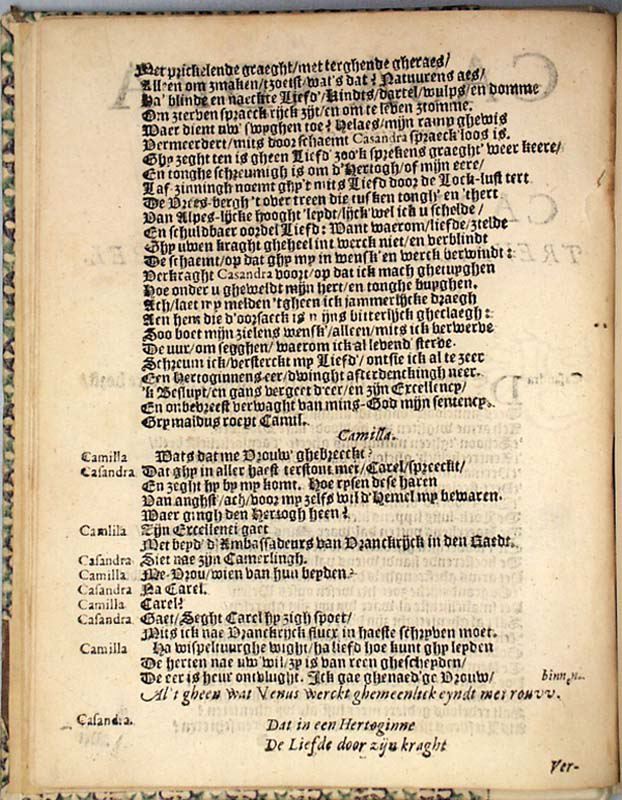 Met prickelende graeght/met terghende gheraes/
Alleen om smaken/tzoetst/wat's dat? Natuurens aes/
Ha' blinde en naeckte Liefd'/Kindts/dartel/wulps/en domme
Om sterven spraeck rijck zijt/en om te leven stomme.
Waer dient uw' swyghen toe? Helaes/mijn ramp ghewis
Vermeerdert/mits door schaemt Casandra spraeck'loos is.
Ghy zeght ten is gheen Liefd' zoo'k sprekens graeght' weer keere/
En tonghe schreumigh is om d'Hertogh/of mijn eere/
Laf-zinningh noemt ghy't mits Liefd door de Lock-lust tert
De Vrees-bergh 't over treen die tusken tongh' en 'thert
Van Alpes-lijcke hooght 'leydt/lijck'wel ick u schelde/
En schuldbaer oordel Liefd: Want waerom/liefde/stelde
Ghy uwen kraght gheheel int werck niet/en verblindt
De schaemt/op dat ghy my in wensk' en werck verwindt:
Verkraght Casandra voort/op dat ick mach ghetuyghen
Hoe onder u gheweldt mijn hert/en tonghe buyghen.
Ach/laet my melden 'tgheen ick jammerlijcke draegh
Aen hem die d'oorsaeck is mijns bitterlijck gheclaegh:
Soo boet mijn zielens wensk'/alleen/mits ick verwerve
De uur/om segghen/waerom ick al levend' sterve.
Schreum ick/versterckt my Liefd'/ontsie ick al te zeer
Een Hertoginnens eer/dwinght afterdenckingh neer.
'k Besluyt/en gans vergeet d'eer/en zijn Excellency/
En onbevreest verwaght van min-God mijn sentency.
Grymaldus roept Camil.
Camilla.
Camilla Wats dat me Vrouw' ghebreeckt?
Casandra Dat ghy in aller haest terstont met/Carel/spreeckt/
En zeght hy by my komt. Hoe rysen dese haren
Van anghst/ach/door my zelfs wil d'Hemel my bewaren.
Waer gingh den Hertogh heen?
Camlila Zijn Excellenti gaet
Met beyd' d'Ambassadeurs van Vranckrijck in den Raedt.
Casandra Siet nae zijn Camerlingh.
Camilla Me-Vrou/wien van hun beyden?
Casandra Na Carel.
Camilla Carel?
Casandra Gaet/Seght Carel hy zigh spoet/
Mits ick nae Vranckrijck flucx in haeste schryven moet.
Camilla Ha wispeltuurghe wight/ha liefd hoe kunt ghy leyden
De herten nae uw wil/zy is van reen ghescheyden/
De eer is heur ontvlught. Ick gae ghenaed'ge Vrouw/ binnen.
Al't gheen wat Venus werckt ghemeenlick eyndt met rouvv.
Casandra. Dat in een Hertoginne
De Liefde door zijn kraght
Ver-